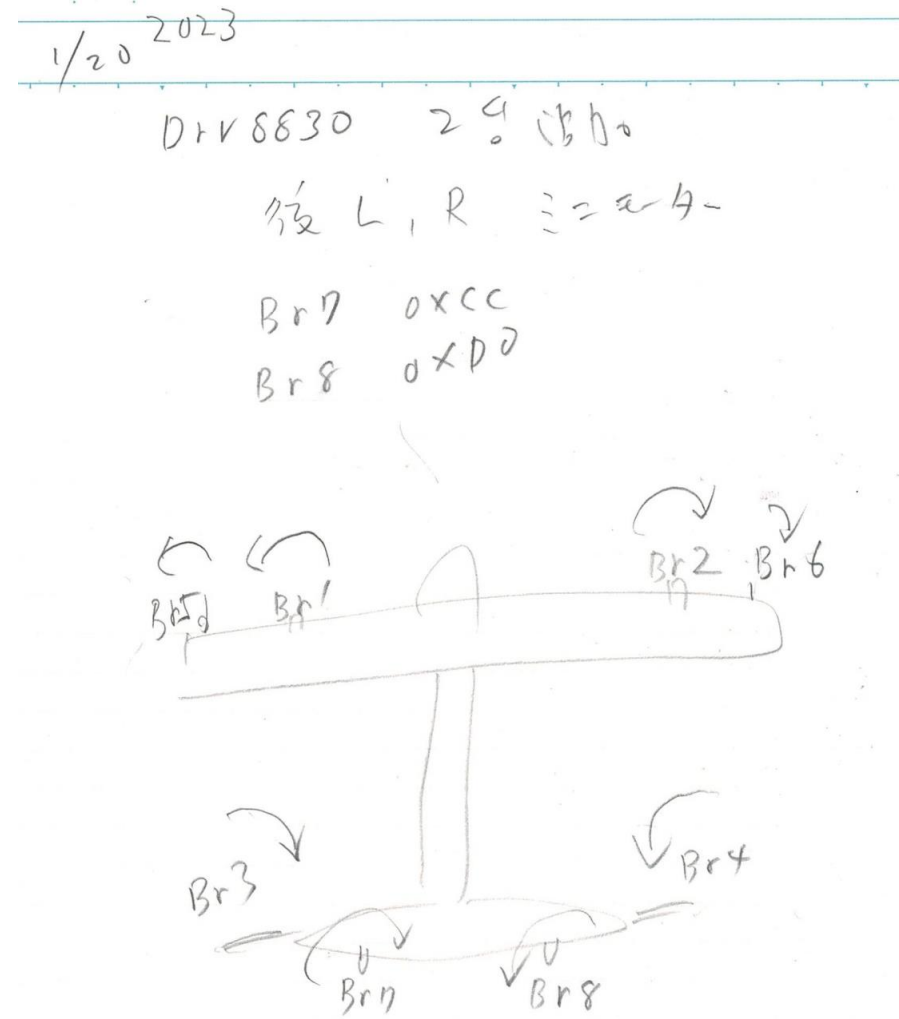 1/20 2023
Drv8830 2コ 追加。
後 L, R ミニモーター
Br7 0xCC
Br8 0xD0
Br5 Br1 Br2 Br6
Br3 Br4
Br7 Br8